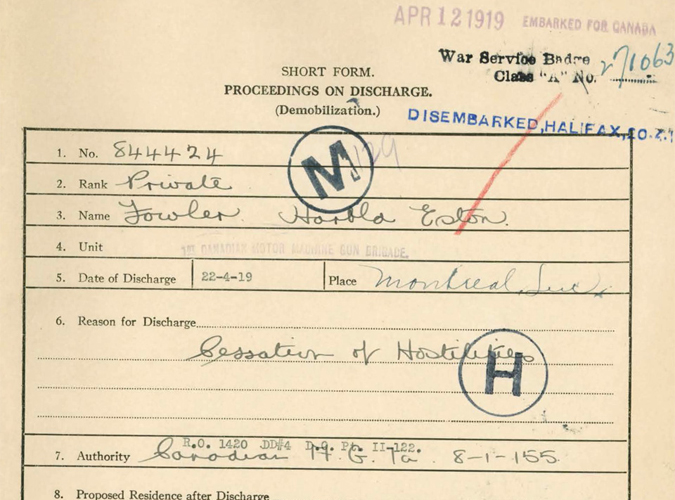 APR 12 1919 EMBARKED FOR CANADA
War Service Badge
Class "A" No. 271063
SHORT FORM.
PROCEEDINGS ON DISCHARGE.
(Demobilization.)
DISEMBARKED, HALIFAX, 20.4.1
1. No. 844424
M
129
2. Rank Private
3. Name Fowler. Harold Eston.
4. Unit 1ST CANADIAN MOTOR MACHINE GUN BRIGADE.
5. Date of Discharge 22-4-19 Place Montreal, Que.
6. Reason for Discharge
Cessation of Hostilities
H
R.O. 1420 DD#4 D.O. Pt. II-122.
7. Authority Canadian 8-1-155
8. Proposed Residence after Discharge